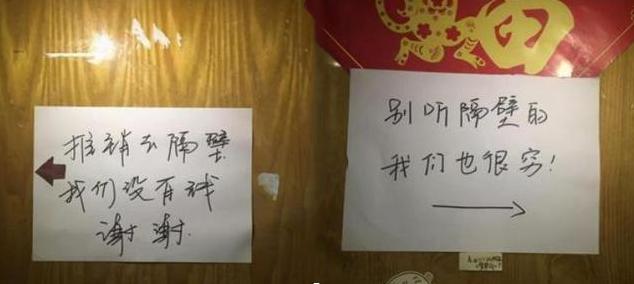 推销去隔壁
我们没有钱
谢谢
别听隔壁的
我们也很穷!